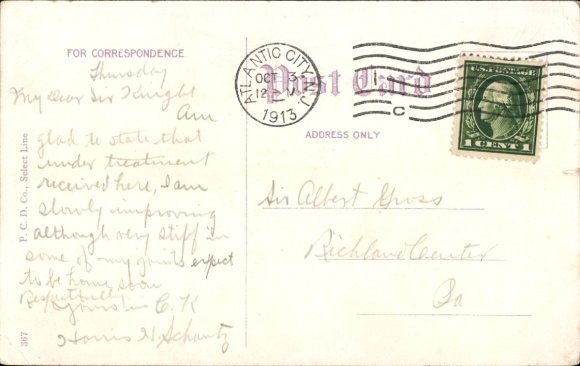 FOR CORRESPONDENCE
Thursday
My Dear Sir Knight
Am
glad to state that
under treatment
received here, I am
slowly improving
although very stiff in
some of my joints expect
to be home soon
Respectfully
yours in C. K
Harris H. Schantz
P. C. D. Co., Select Line
3167
Post Card
ADDRESS ONLY
ATLANTIC CITY, N.J.
OCT 3
12 - M
1913
C
U.S. POSTAGE
1 CENT 1
Sir Albert Gross
Richland Center
Pa